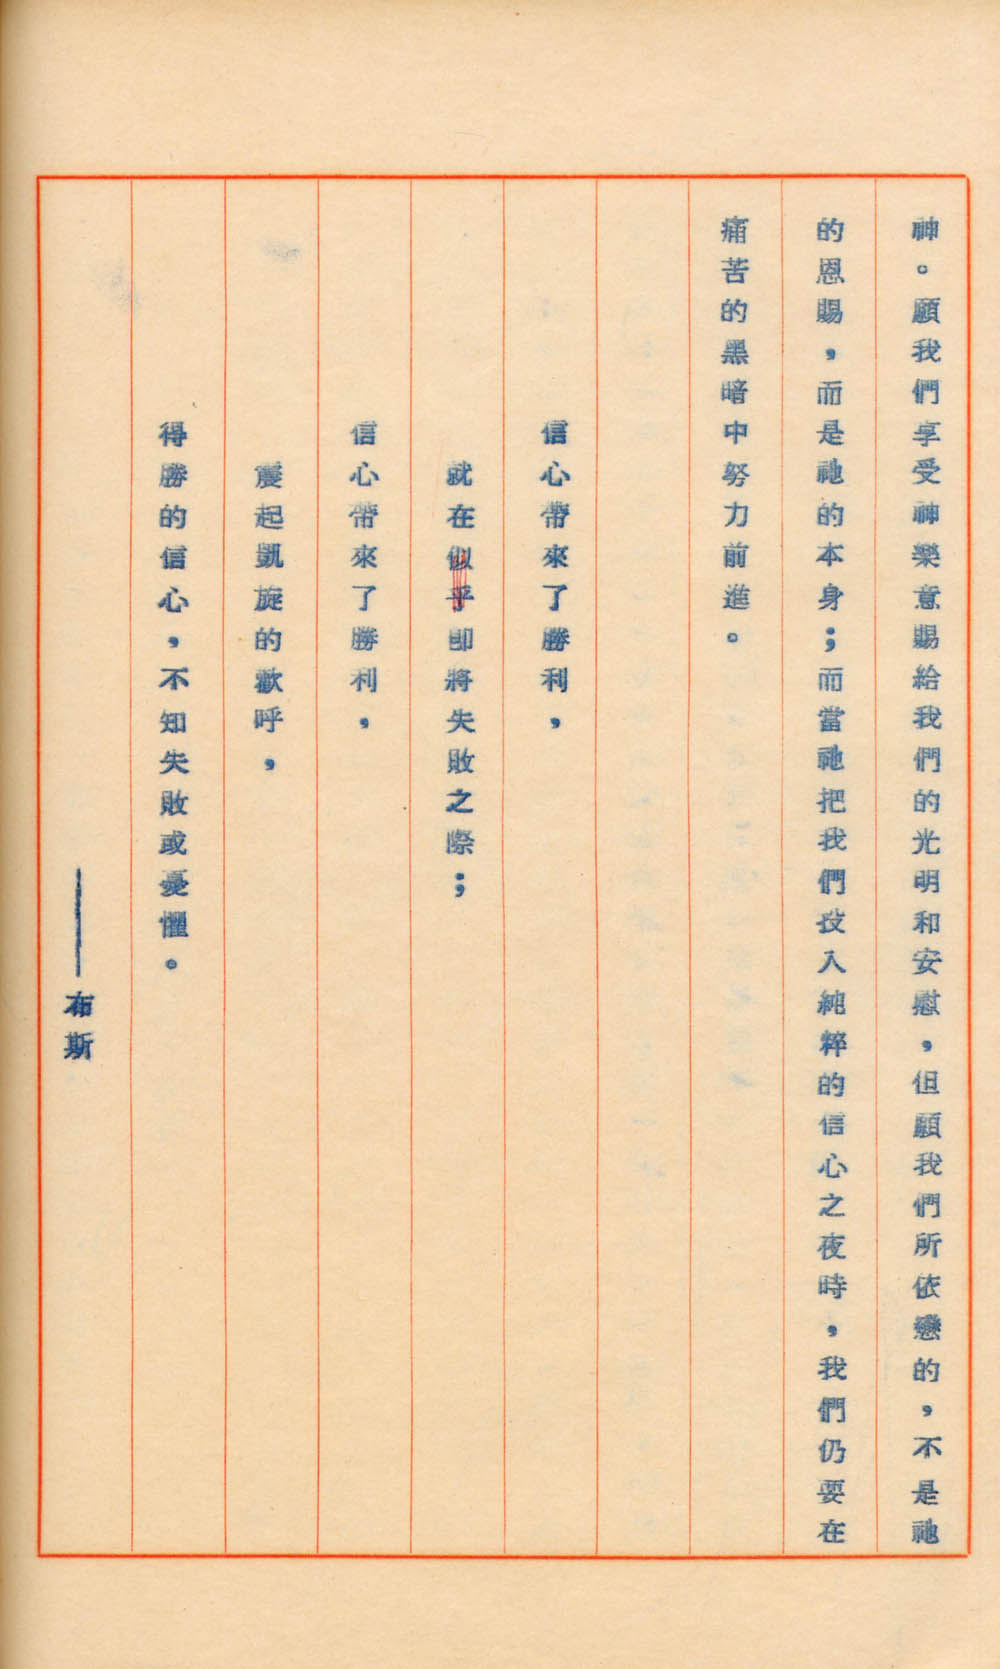 神。願我們享受神樂意賜給我們的光明和安慰,但願我們所依戀的,不是祂
的恩賜,而是祂的本身;而當祂把我們投入純粹的信心之夜時,我們仍要在
痛苦的黑暗中努力前進。
信心帶來了勝利,
就在似乎即將失敗之際;
信心帶來了勝利,
震起凱旋的歡呼,
得勝的信心,不知失敗或憂懼。
——布斯